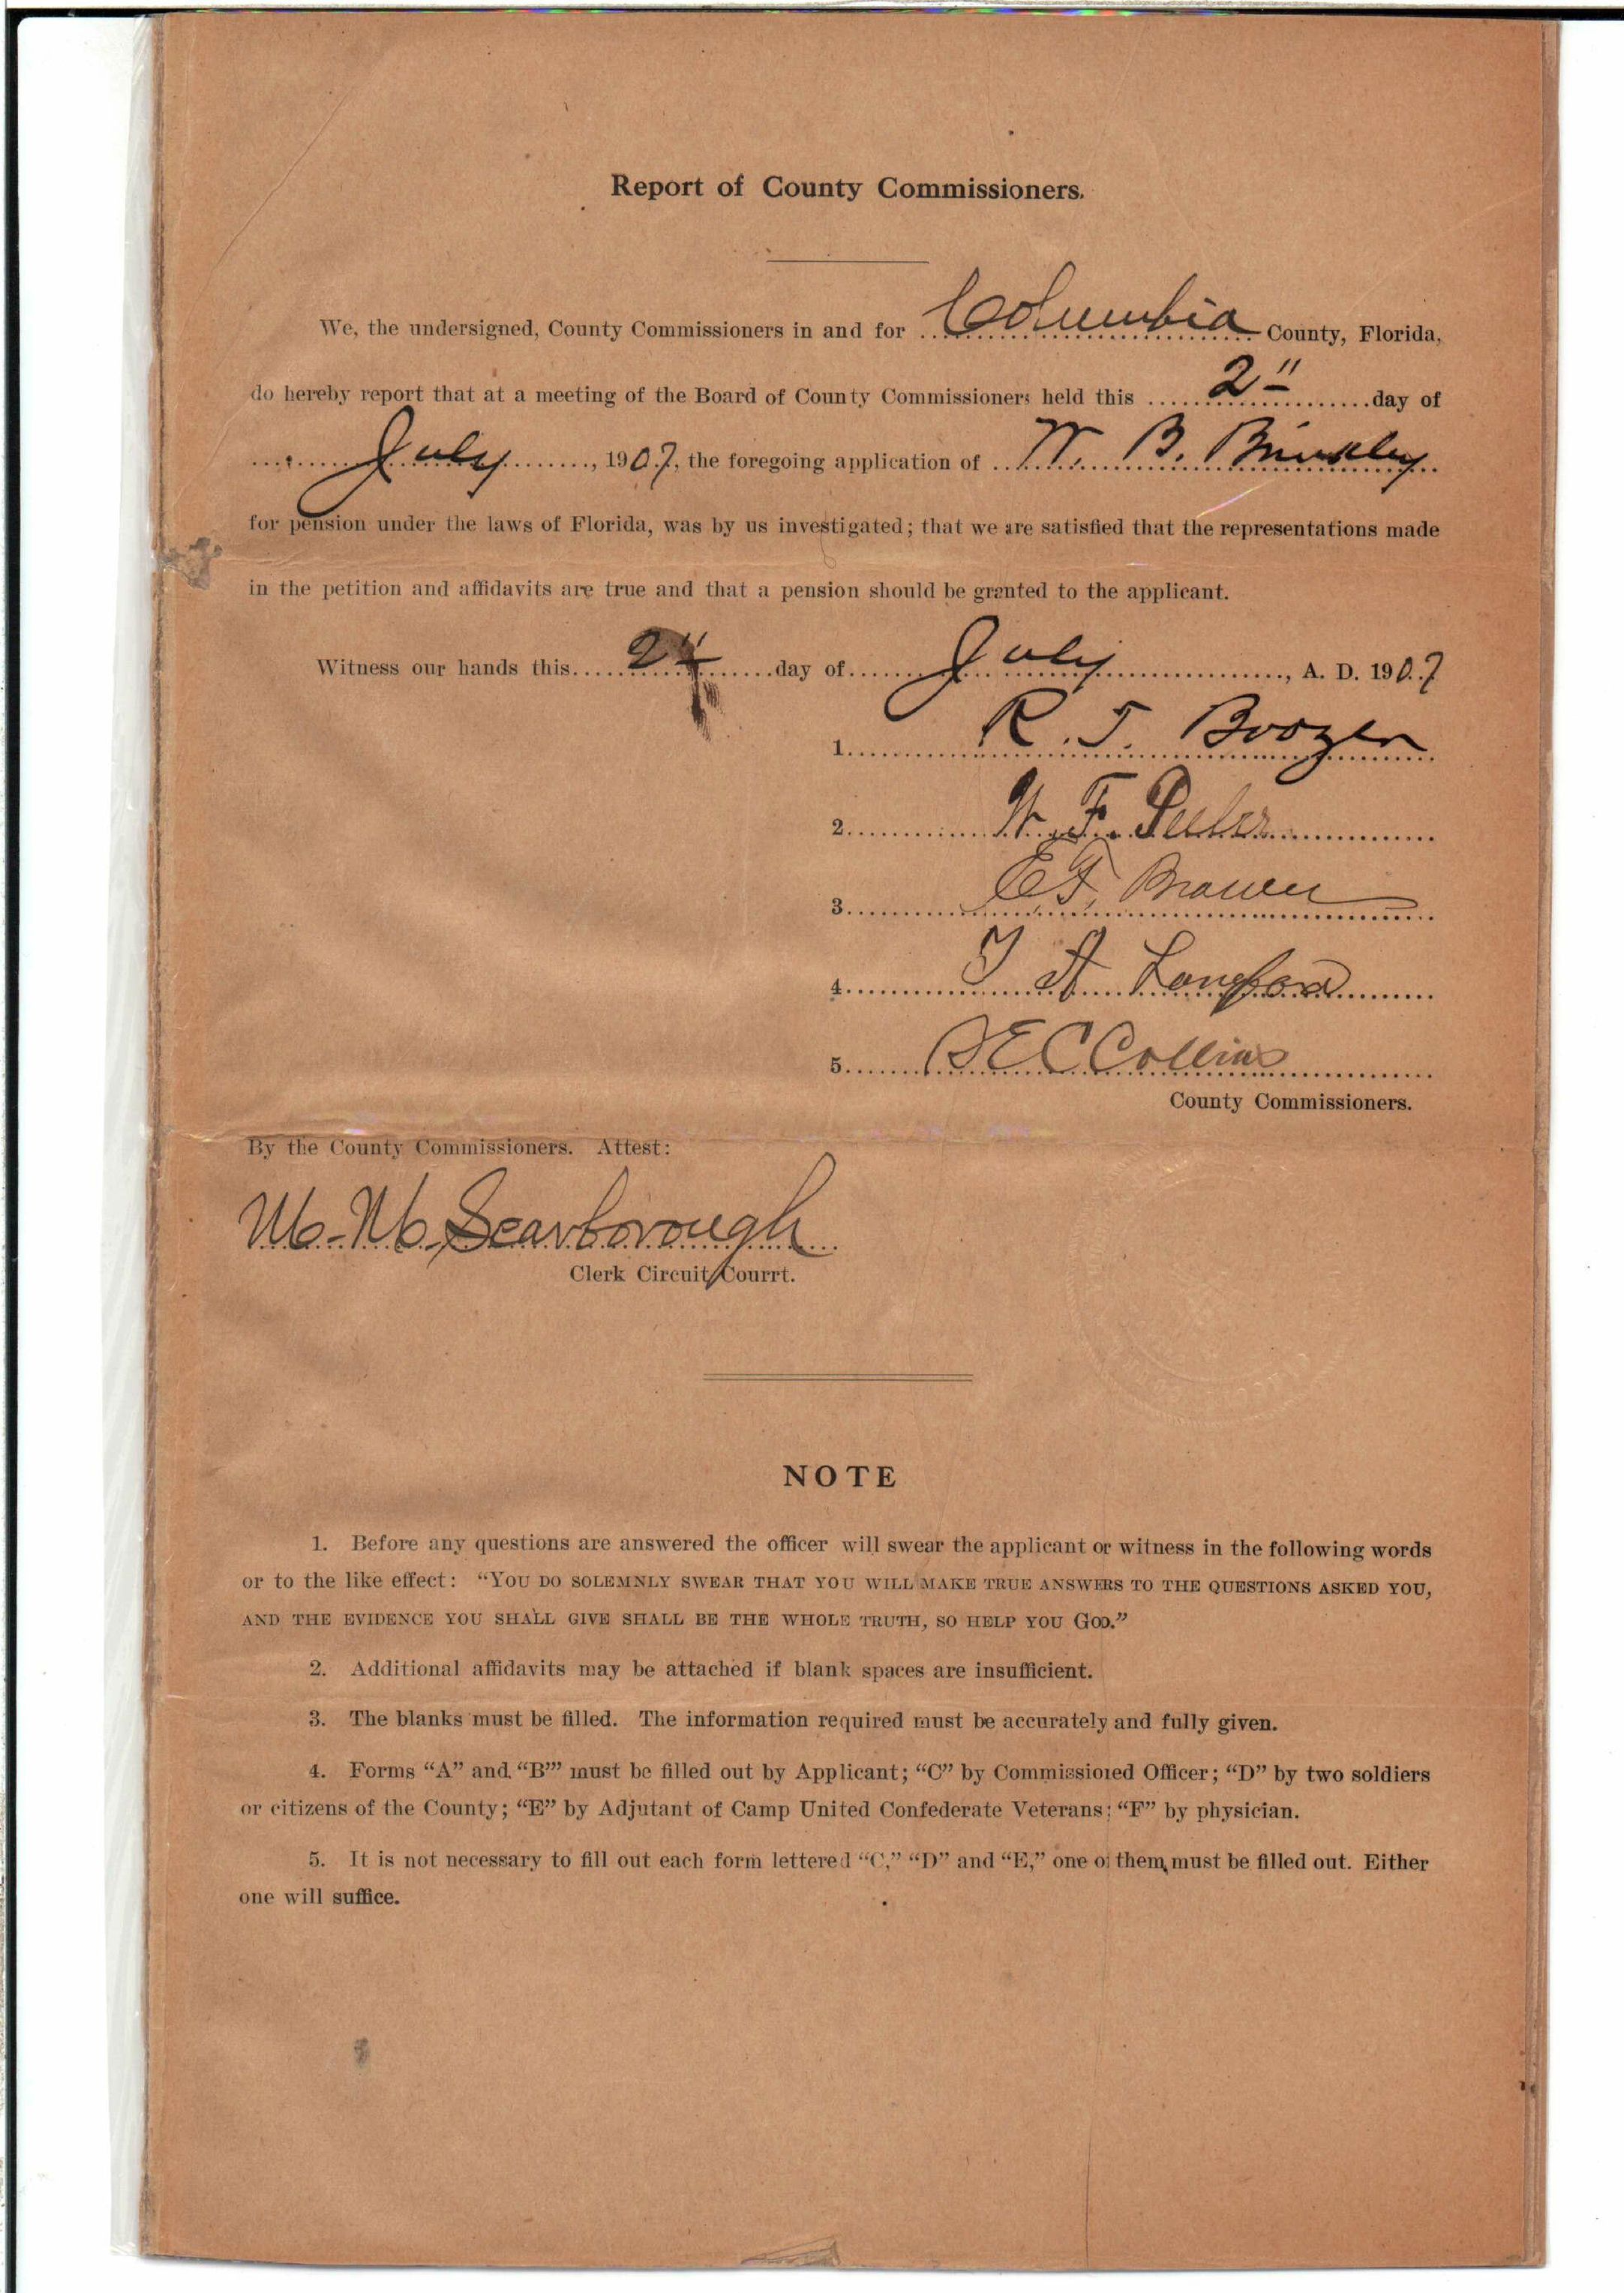 Report of County Commissioners.
We, the undersigned, County Commissioners in and for Columbia County, Florida,
do hereby report that at a meeting of the Board of County Commissioners held this 2" day of
July, 1907, the foregoing application of W. B. Brinkley
for pension under the laws of Florida, was by us investigated; that we are satisfied that the representations made
in the petition and affidavits are true and that a pension should be granted to the applicant.
Witness our hands this 2" day of July, A. D. 1907
1. R. T. Boozer
2. W. F. Peeler
3. C F, Brown
4. T A Langford
5. B E C Collins
County Commissioners.
By the County Commissioners. Attest:
M. M. Scarborough
Clerk Circuit Courrt.
NOTE
1. Before any questions are answered the officer will swear the applicant or witness in the following words
or to the like effect: “YOU DO SOLEMNLY SWEAR THAT YOU WILL MAKE TRUE ANSWERS TO THE QUESTIONS ASKED YOU,
AND THE EVIDENCE YOU SHALL GIVE SHALL BE THE WHOLE TRUTH, SO HELP YOU GOD.”
2. Additional affidavits may be attached if blank spaces are insufficient.
3. The blanks must be filled. The information required must be accurately and fully given.
4. Forms “A” and “B”’ must be filled out by Applicant; “C” by Commissioned Officer; “D” by two soldiers
or citizens of the County; “E” by Adjutant of Camp United Confederate Veterans; “F” by physician.
5. It is not necessary to fill out each form lettered “C,” “D” and “E,” one of them must be filled out. Either
one will suffice.